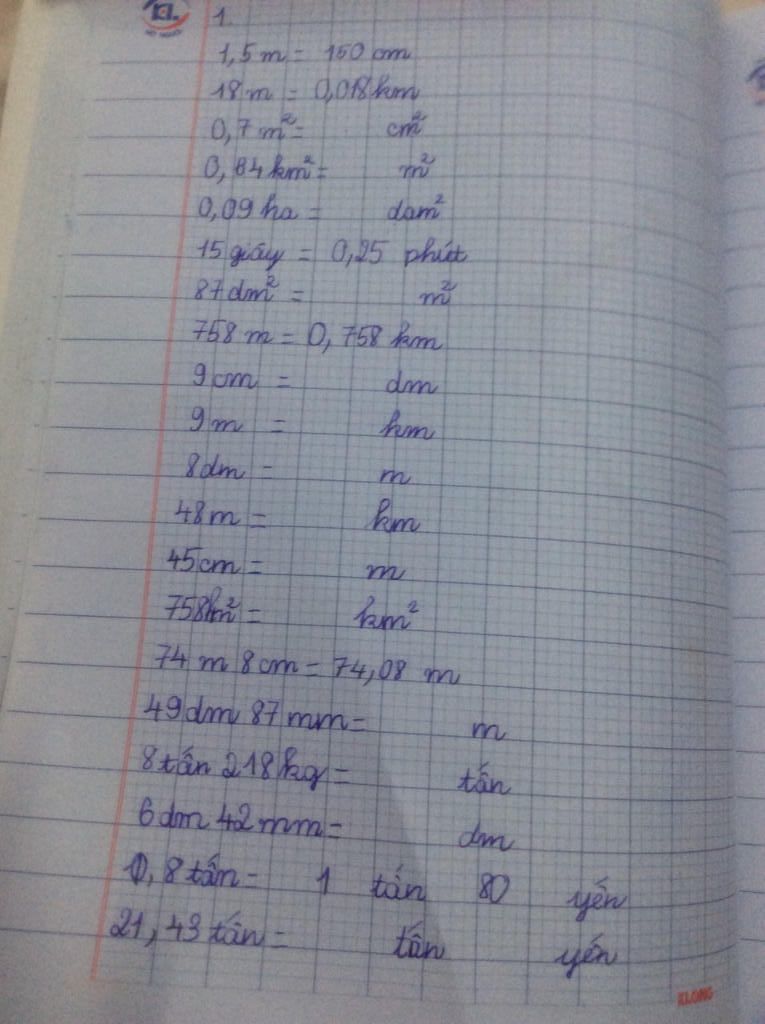 1
1,5 m = 150 cm
18 m = 0,018 km
0,7 m² = cm²
0,84 km² = m²
0,09 ha = dam²
15 giây = 0,25 phút
87 dm² = m²
758 m = 0,758 km
9 cm = dm
9 m = km
8 dm = m
48 m = km
45 cm = m
758 m² = km²
74 m 8 cm = 74,08 m
49 dm 87 mm = m
8 tấn 218 kg = tấn
6 dm 42 mm = dm
,8 tấn = 1 tấn 80 yến
21,43 tấn = tấn yến
KLONG